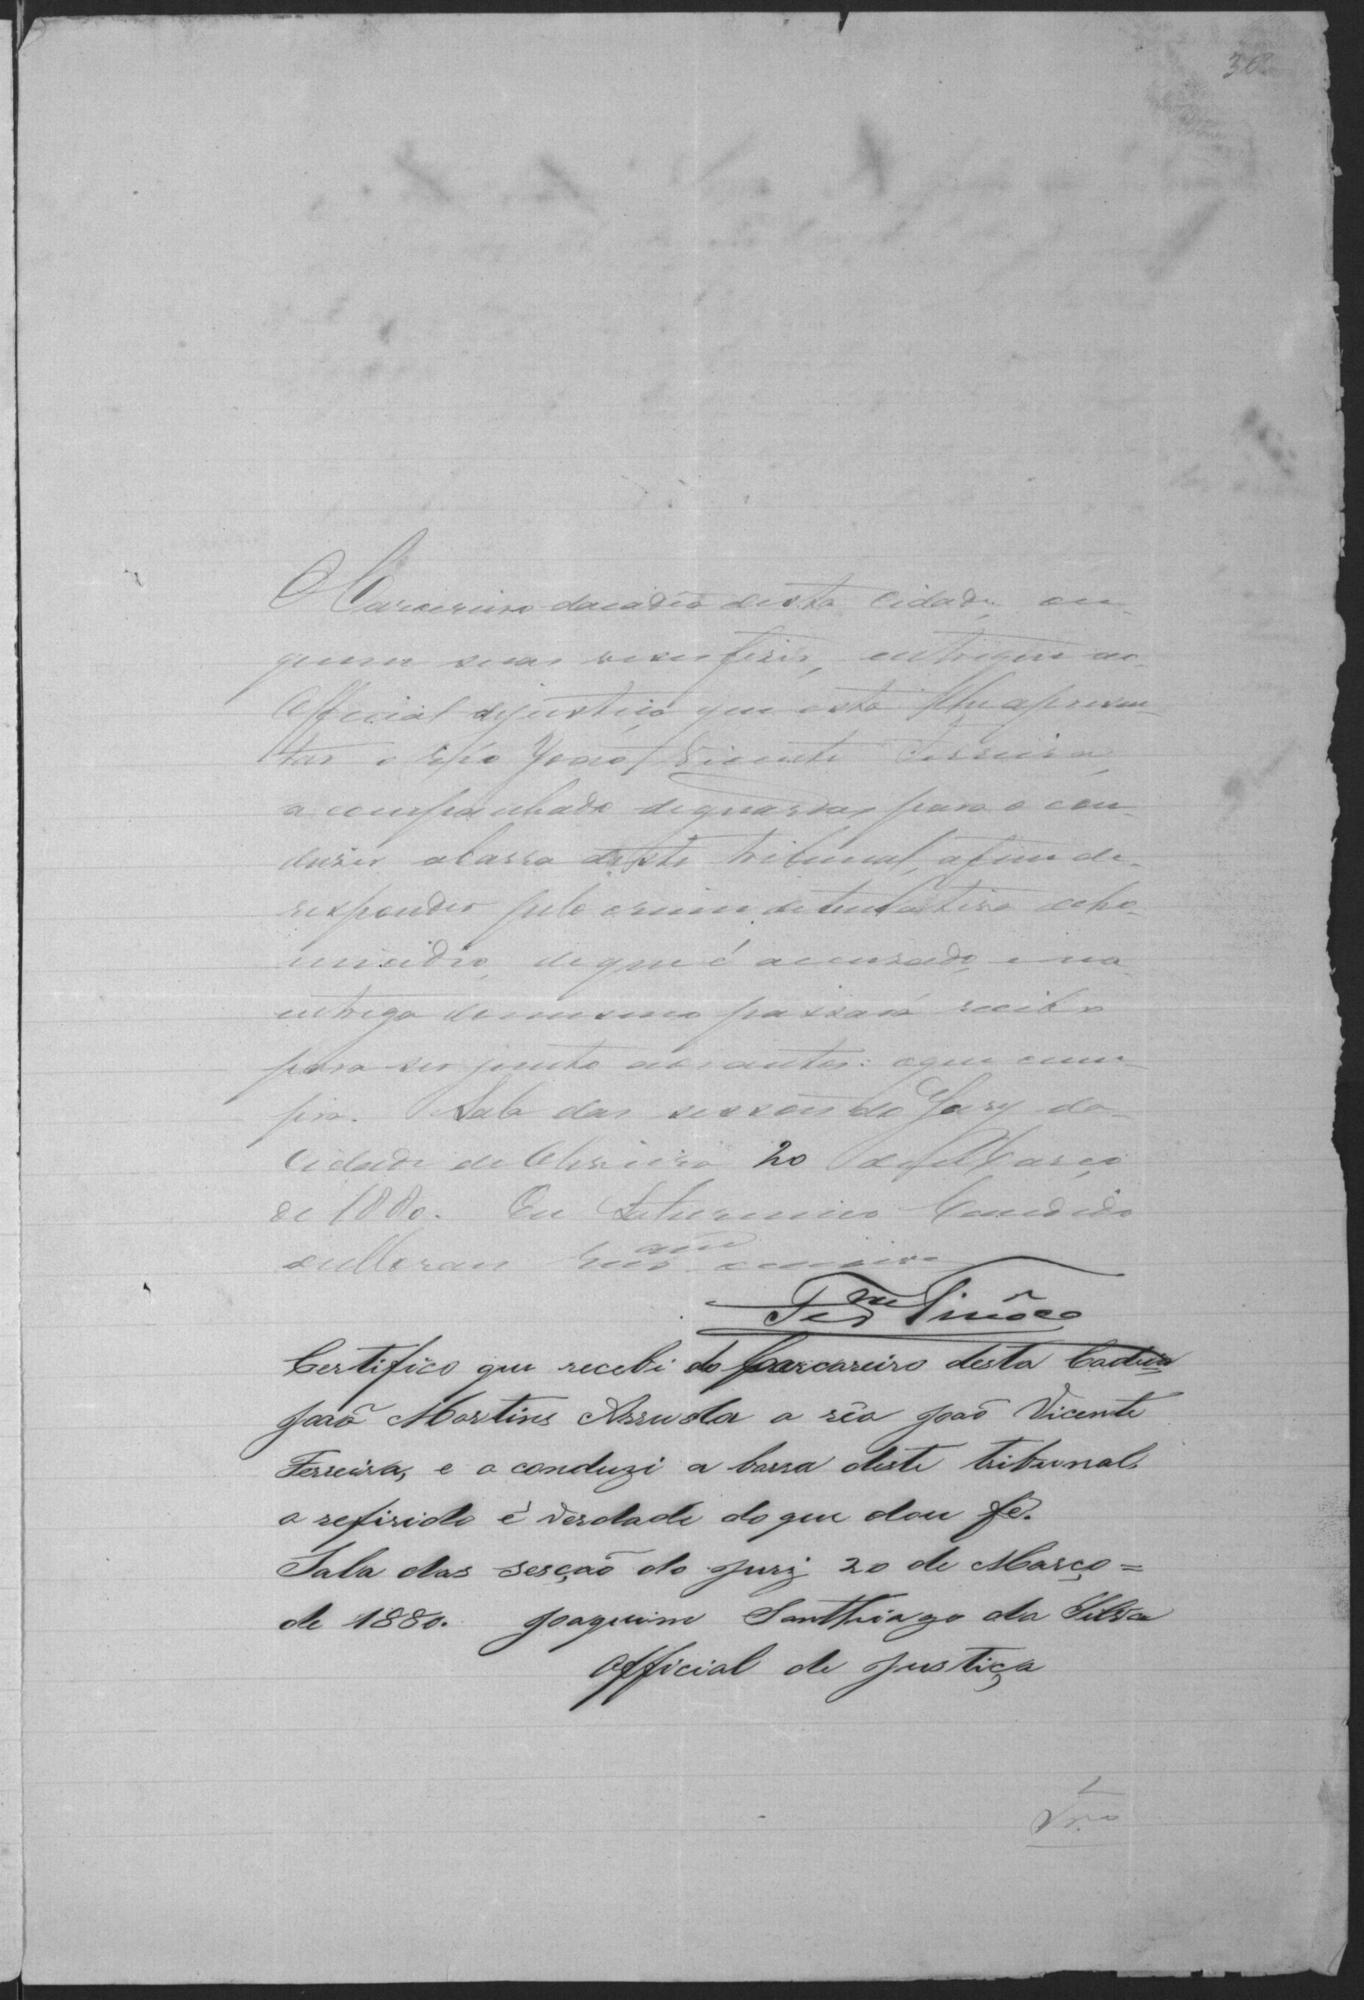 36
O Carcereiro da cadeia desta cidade, ou
quem suas veses fizer, entregue ao
Official de justiça que esta lhe apresen-
tar o réo João Vicente Ferreira,
acompanhado de guardas para o con-
duzir a barra deste tribunal, afim de
responder pelo crime de tentativa de ho-
micidio, de que é accusado, e na
entrega do mesmo passará recibo
para ser junto aos autos: o que cum-
pra. Sala das sessões do Jury da
Cidade de Oliveira 20 de Março
de 1880. Eu Saturnino Candido
escrivão
Tinôco
Certifico que recebi do Carcareiro desta Cadeia
João Martins Arruda o réo João Vicente
Ferreira, e o conduzi a barra deste tribunal,
o refirido é verdade do que dou fé.
Sala das sesção do jury 20 de Março =
de 1880. Joaquim Santhiago da Silva
Official de justiça